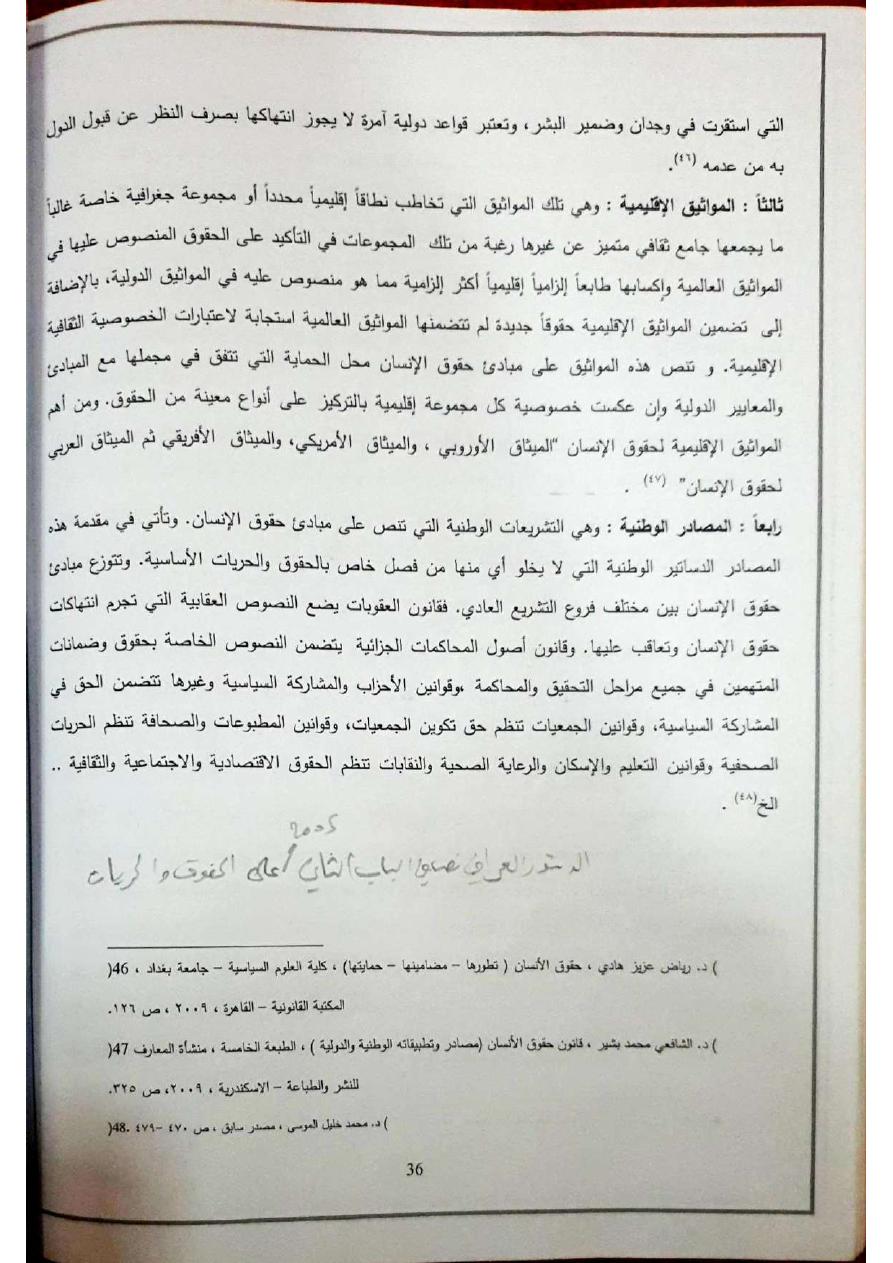 التي استقرت في وجدان وضمير البشر ، وتعتبر قواعد دولية آمرة لا يجوز انتهاكها بصرف النظر عن قبول الدول
به من عدمه (٤٦).
ثالثاً : المواثيق الإقليمية : وهي تلك المواثيق التي تخاطب نطاقاً إقليمياً محدداً أو مجموعة جغرافية خاصة غالباً
ما يجمعها جامع ثقافي متميز عن غيرها رغبة من تلك المجموعات في التأكيد على الحقوق المنصوص عليها في
المواثيق العالمية وإكسابها طابعاً إلزامياً إقليمياً أكثر إلزامية مما هو منصوص عليه في المواثيق الدولية، بالإضافة
إلى تضمين المواثيق الإقليمية حقوقاً جديدة لم تتضمنها المواثيق العالمية استجابة لاعتبارات الخصوصية الثقافية
الإقليمية. و تنص هذه المواثيق على مبادئ حقوق الإنسان محل الحماية التي تتفق في مجملها مع المبادئ
والمعايير الدولية وإن عكست خصوصية كل مجموعة إقليمية بالتركيز على أنواع معينة من الحقوق. ومن أهم
المواثيق الإقليمية لحقوق الإنسان "الميثاق الأوروبي ، والميثاق الأمريكي، والميثاق الأفريقي ثم الميثاق العربي
لحقوق الإنسان" (٤٧) .
رابعاً : المصادر الوطنية : وهي التشريعات الوطنية التي تنص على مبادئ حقوق الإنسان. وتأتي في مقدمة هذه
المصادر الدساتير الوطنية التي لا يخلو أي منها من فصل خاص بالحقوق والحريات الأساسية. وتتوزع مبادئ
حقوق الإنسان بين مختلف فروع التشريع العادي. فقانون العقوبات يضع النصوص العقابية التي تجرم انتهاكات
حقوق الإنسان وتعاقب عليها. وقانون أصول المحاكمات الجزائية يتضمن النصوص الخاصة بحقوق وضمانات
المتهمين في جميع مراحل التحقيق والمحاكمة ،وقوانين الأحزاب والمشاركة السياسية وغيرها تتضمن الحق في
المشاركة السياسية، وقوانين الجمعيات تنظم حق تكوين الجمعيات، وقوانين المطبوعات والصحافة تنظم الحريات
الصحفية وقوانين التعليم والإسكان والرعاية الصحية والنقابات تنظم الحقوق الاقتصادية والاجتماعية والثقافية ..
الخ(٤٨) .
2005
الدستور العراقي نص في الباب الثاني على الحقوق والحريات
) د. رياض عزيز هادي ، حقوق الأنسان ( تطورها – مضامينها – حمايتها) ، كلية العلوم السياسية – جامعة بغداد ، 46(
المكتبة القانونية – القاهرة ، ٢٠٠٩ ، ص ١٢٦.
) د. الشافعي محمد بشير ، قانون حقوق الأنسان (مصادر وتطبيقاته الوطنية والدولية ) ، الطبعة الخامسة ، منشأة المعارف 47(
للنشر والطباعة – الاسكندرية ، ٢٠٠٩، ص ٣٢٥.
) د. محمد خليل الموسى ، مصدر سابق ، ص ٤٧٠ –٤٧٩ .48(
36